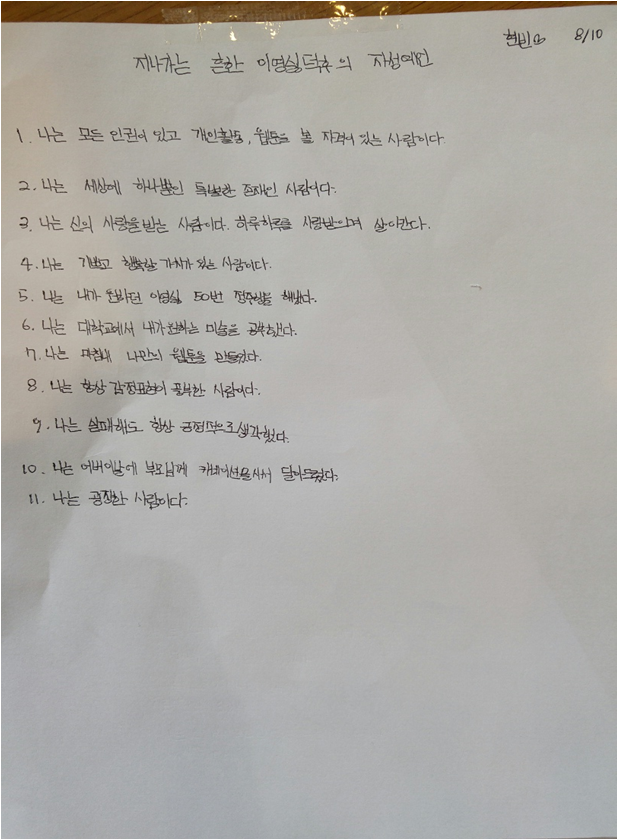 현빈 8/10
지나가는 흔한 이영싫덕후의 자성예언
1. 나는 모든 인권이 있고 개인활동, 웹툰을 볼 자격이 있는 사람이다
2. 나는 세상에 하나뿐인 특별한 존재인 사람이다.
3. 나는 신의 사랑을 받는 사람이다. 하루하루를 사랑받으며 살아간다.
4. 나는 기쁘고 행복할 가치가 있는 사람이다.
5. 나는 내가 원하던 이영싫 50번 정주행을 해냈다.
6. 나는 대학교에서 내가 원하는 미술을 공부했다.
7. 나는 마침내 나만의 웹툰을 만들었다.
8. 나는 항상 감정표현이 풍부한 사람이다.
9. 나는 실패해도 항상 긍정적으로 생각했다.
10. 나는 어버이날에 부모님께 카네이션을 사서 달아드렸다.
11. 나는 굉장한 사람이다.